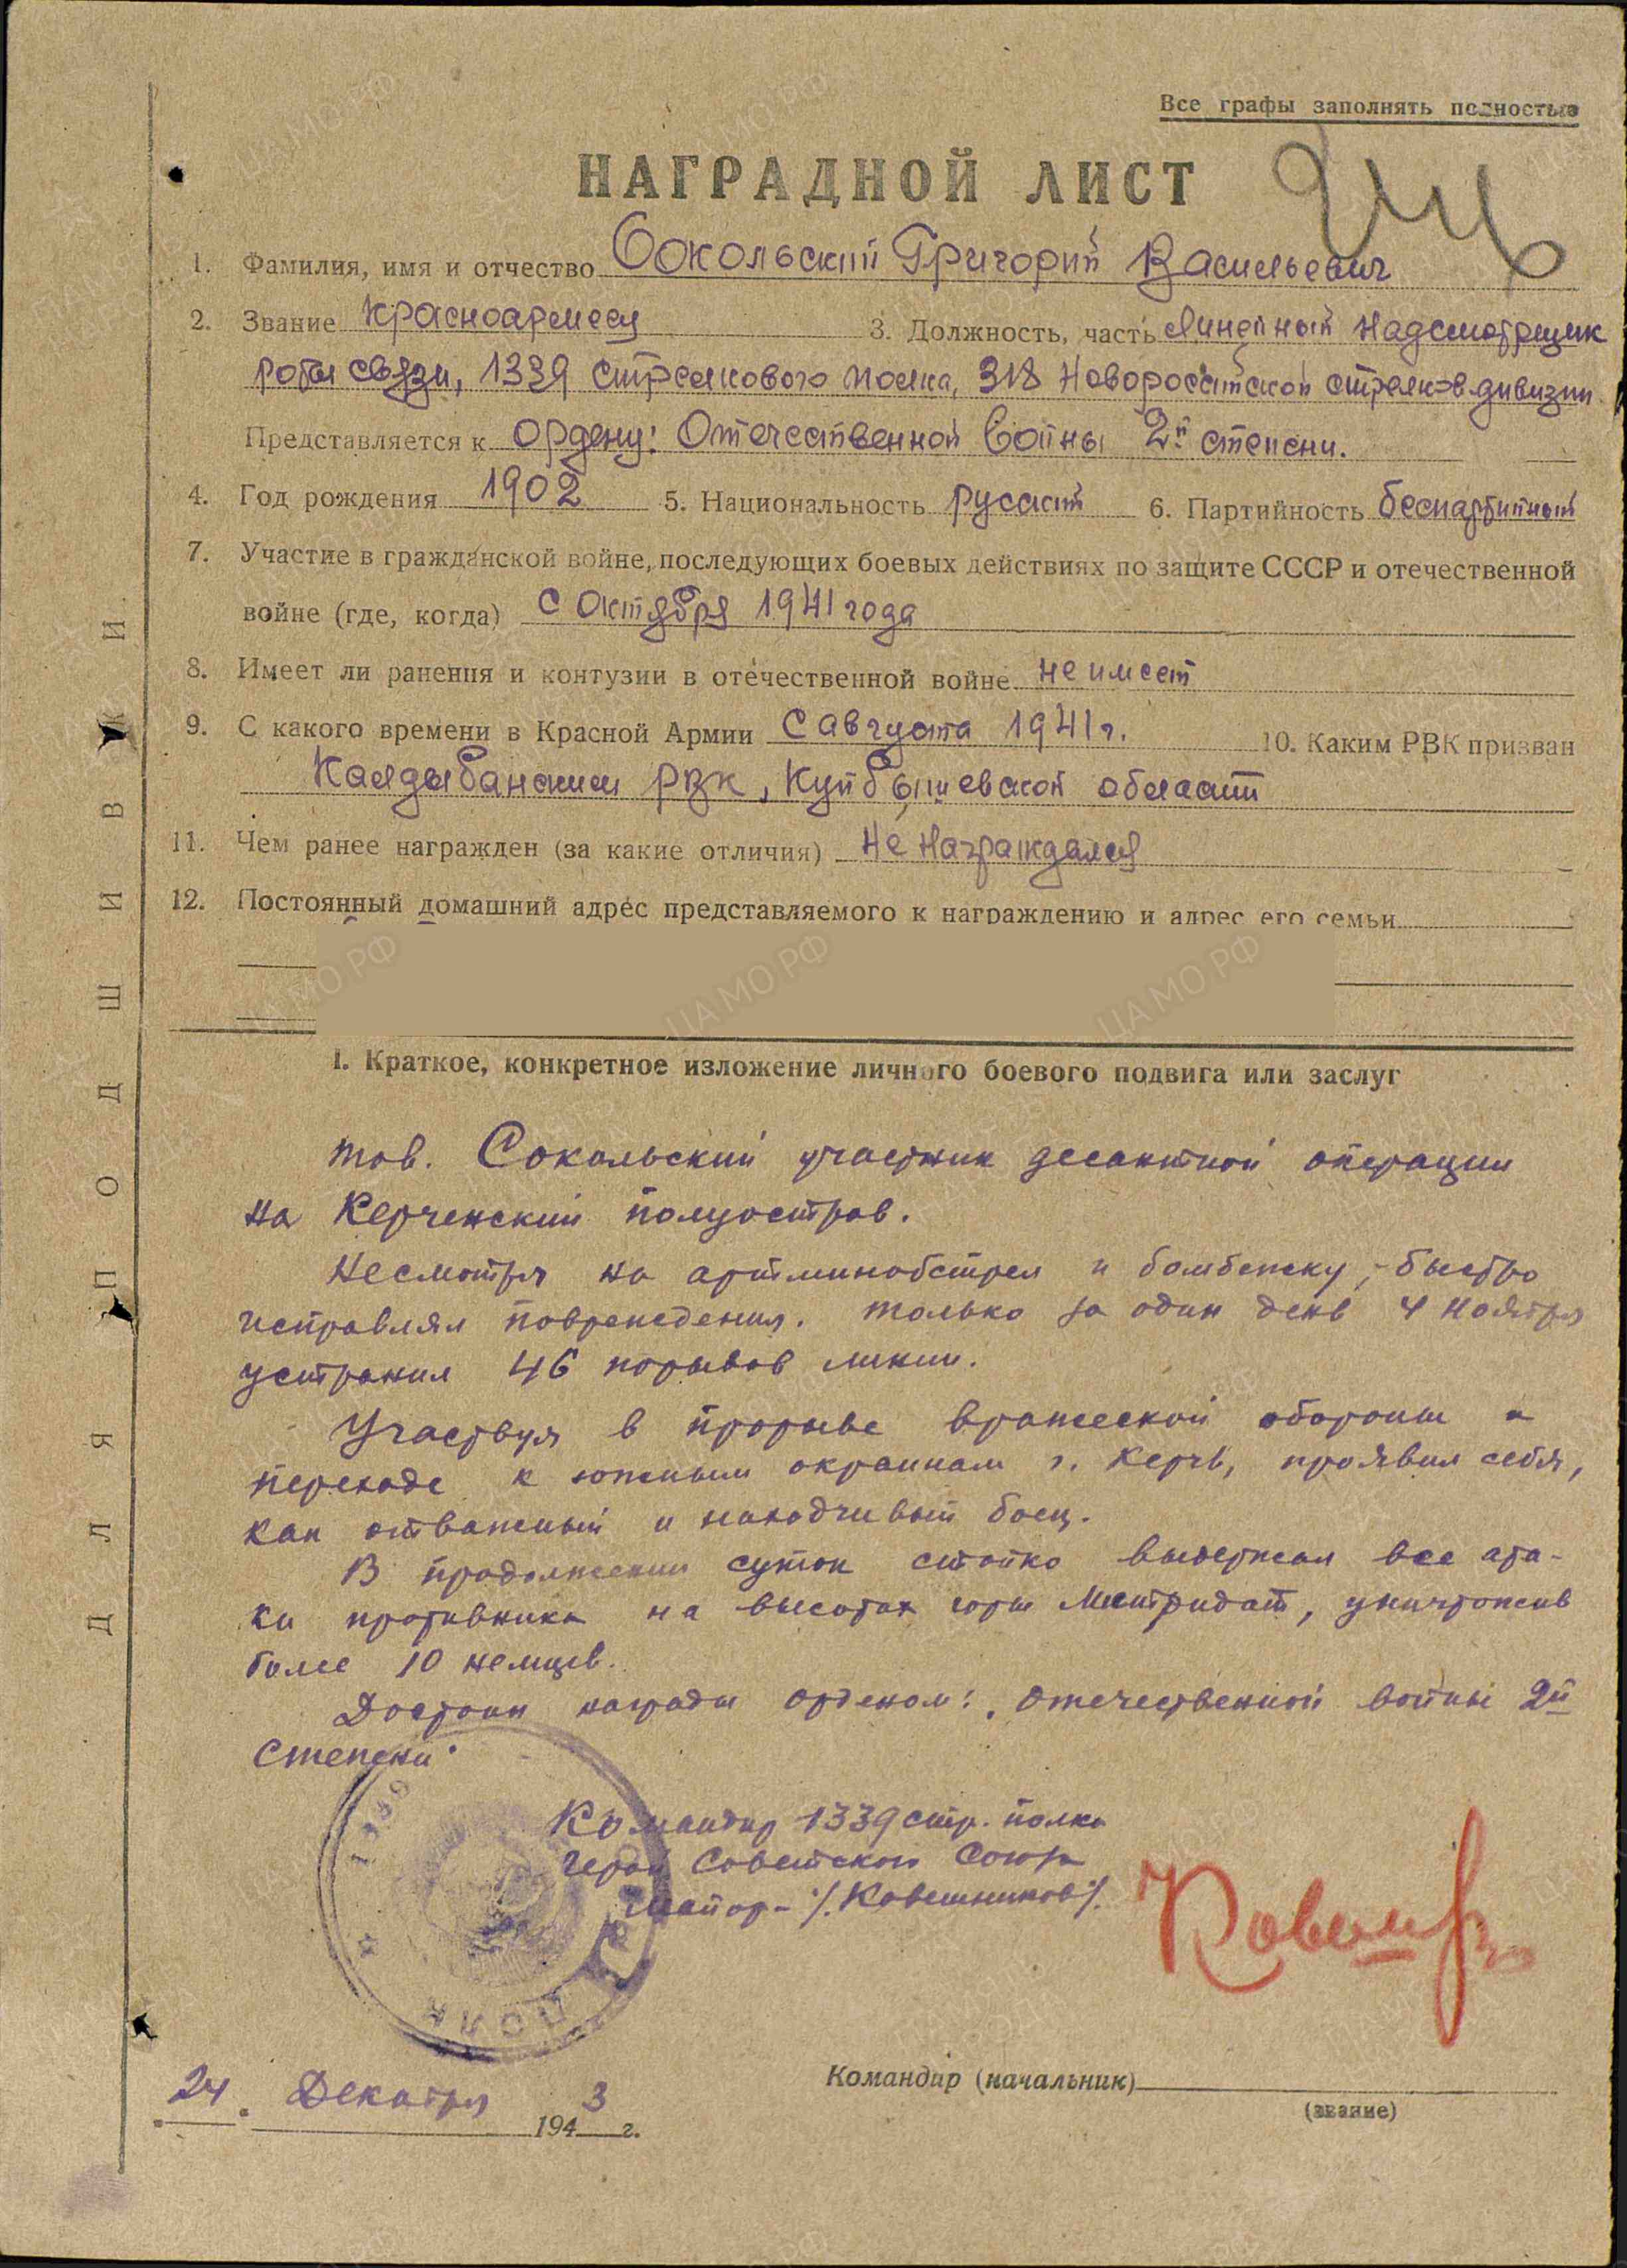 Все графы заполнять полностью
НАГРАДНОЙ ЛИСТ
1. Фамилия, имя и отчество Сокольский Григорий Васильевич
2. Звание красноармеец 3. Должность, часть Линейный надсмотрщик
роты связи, 1339 стрелкового полка, 318 Новороссийской стрелков. дивизии
Представляется к ордену: Отечественной Войны 2й степени.
4. Год рождения 1902 5. Национальность русский 6. Партийность беспартийный
7. Участие в гражданской войне, последующих боевых действиях по защите СССР и отечественной
войне (где, когда) с октября 1941 года
8. Имеет ли ранения и контузии в отечественной войне не имеет
9. С какого времени в Красной Армии с августа 1941 г. 10. Каким РВК призван
Калдыбанским РВК, Куйбышевской области
11. Чем ранее награжден (за какие отличия) не награждался
12. Постоянный домашний адрес представляемого к награждению и адрес его семьи
I. Краткое, конкретное изложение личного боевого подвига или заслуг
тов. Сокольский участник десантной операции
на Керченский полуостров.
Несмотря на артминобстрел и бомбежку, быстро
исправлял повреждения. только за один день 4 ноября
устранил 46 порывов линии.
Участвуя в прорыве вражеской обороны и
переходе к южным окраинам г. Керчь, проявил себя,
как отважный и находчивый боец.
В продолжении суток стойко выдержал все ата-
ки противника на высотах горы Митридат, уничтожив
более 10 немцев.
Достоин награды орденом: Отечественной войны 2й
степени.
Командир 1339 стр. полка
Герой Советского Союза
майор - /. Ковешников /.
1339
ПОЛК
24 Декабря 1943 г.
Командир (начальник)
(звание)
ДЛЯ ПОДШИВКИ
ЦАМО РФ